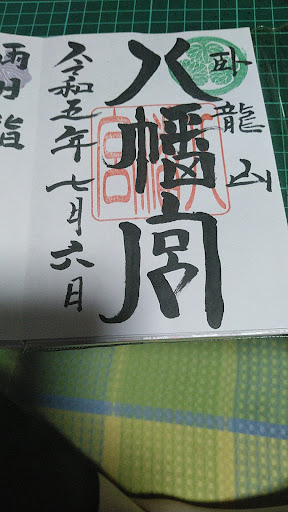 卧龍山
八幡宮
令和五年七月六日